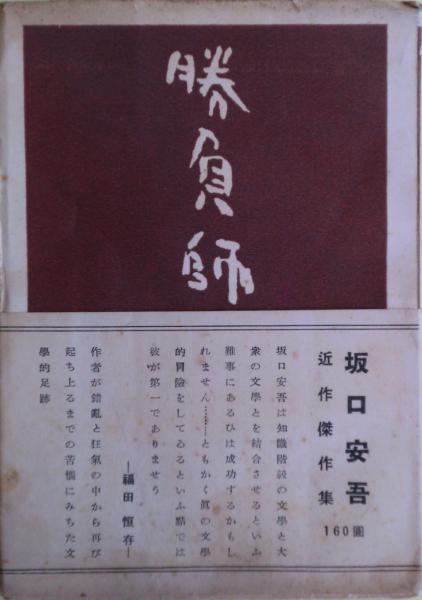 勝負師
坂口安吾
近作傑作集
160圓
坂口安吾は知識階級の文學と大
衆の文學とを結合させるといふ
難事にあるひは成功するかもし
れません……ともかく眞の文學
的冒險をしてゐるといふ點では
彼が第一でありませう
―福田恒存―
作者が錯亂と狂氣の中から再び
起ち上るまでの苦惱にみちた文
學的足跡